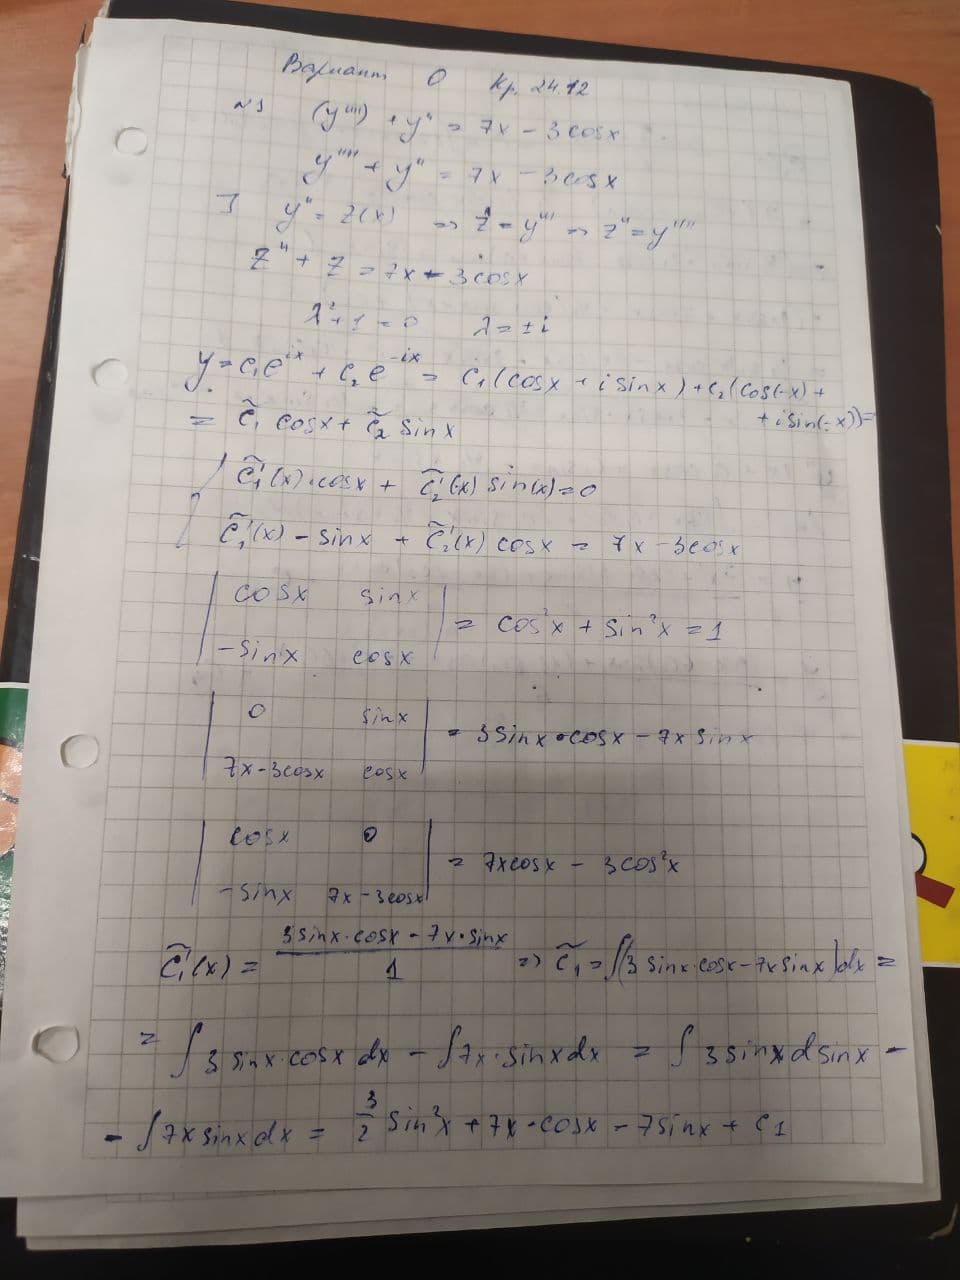 Вариант 0 Кр. 24.12
№1 (y'''') + y'' = 7x - 3cosx
y'''' + y'' = 7x - 3cosx
] y'' = z(x) => z' = y''' => z'' = y''''
z'' + z = 7x - 3cosx
λ² + 1 = 0 λ = ±i
y = c₁e^{ix} + c₂e^{-ix} = c₁(cosx + isinx) + c₂(cos(-x) +
+ isin(-x)) =
= c̃₁ cosx + c̃₂ sinx
{ c̃₁'(x)·cosx + c̃₂'(x) sin(x) = 0
c̃₁'(x) - sinx + c̃₂'(x) cosx = 7x - 3cosx
| cosx sinx |
| -sinx cosx | = cos²x + sin²x = 1
| 0 sinx |
| 7x-3cosx cosx | = 3sinx·cosx - 7x sinx
| cosx 0 |
| -sinx 7x-3cosx | = 7xcosx - 3cos²x
c̃₁'(x) = (3sinx·cosx - 7x·sinx)/1 => c̃₁ = ∫(3sinx·cosx - 7xsinx)dx =
= ∫3sinx·cosx dx - ∫7x·sinxdx = ∫3sinxdsinx -
- ∫7xsinxdx = 3/2 sin²x + 7x·cosx - 7sinx + c₁